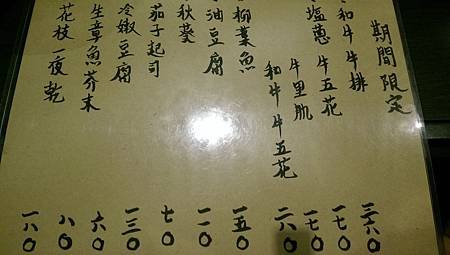 期間限定
和牛牛排 三六〇
塩蔥牛五花 一七〇
牛里肌 一七〇
和牛牛五花 二六〇
柳葉魚 一五〇
油豆腐 一一〇
秋葵 七〇
茄子起司 一三〇
冷嫩豆腐 六〇
生章魚芥末 八〇
花枝一夜乾 一六〇